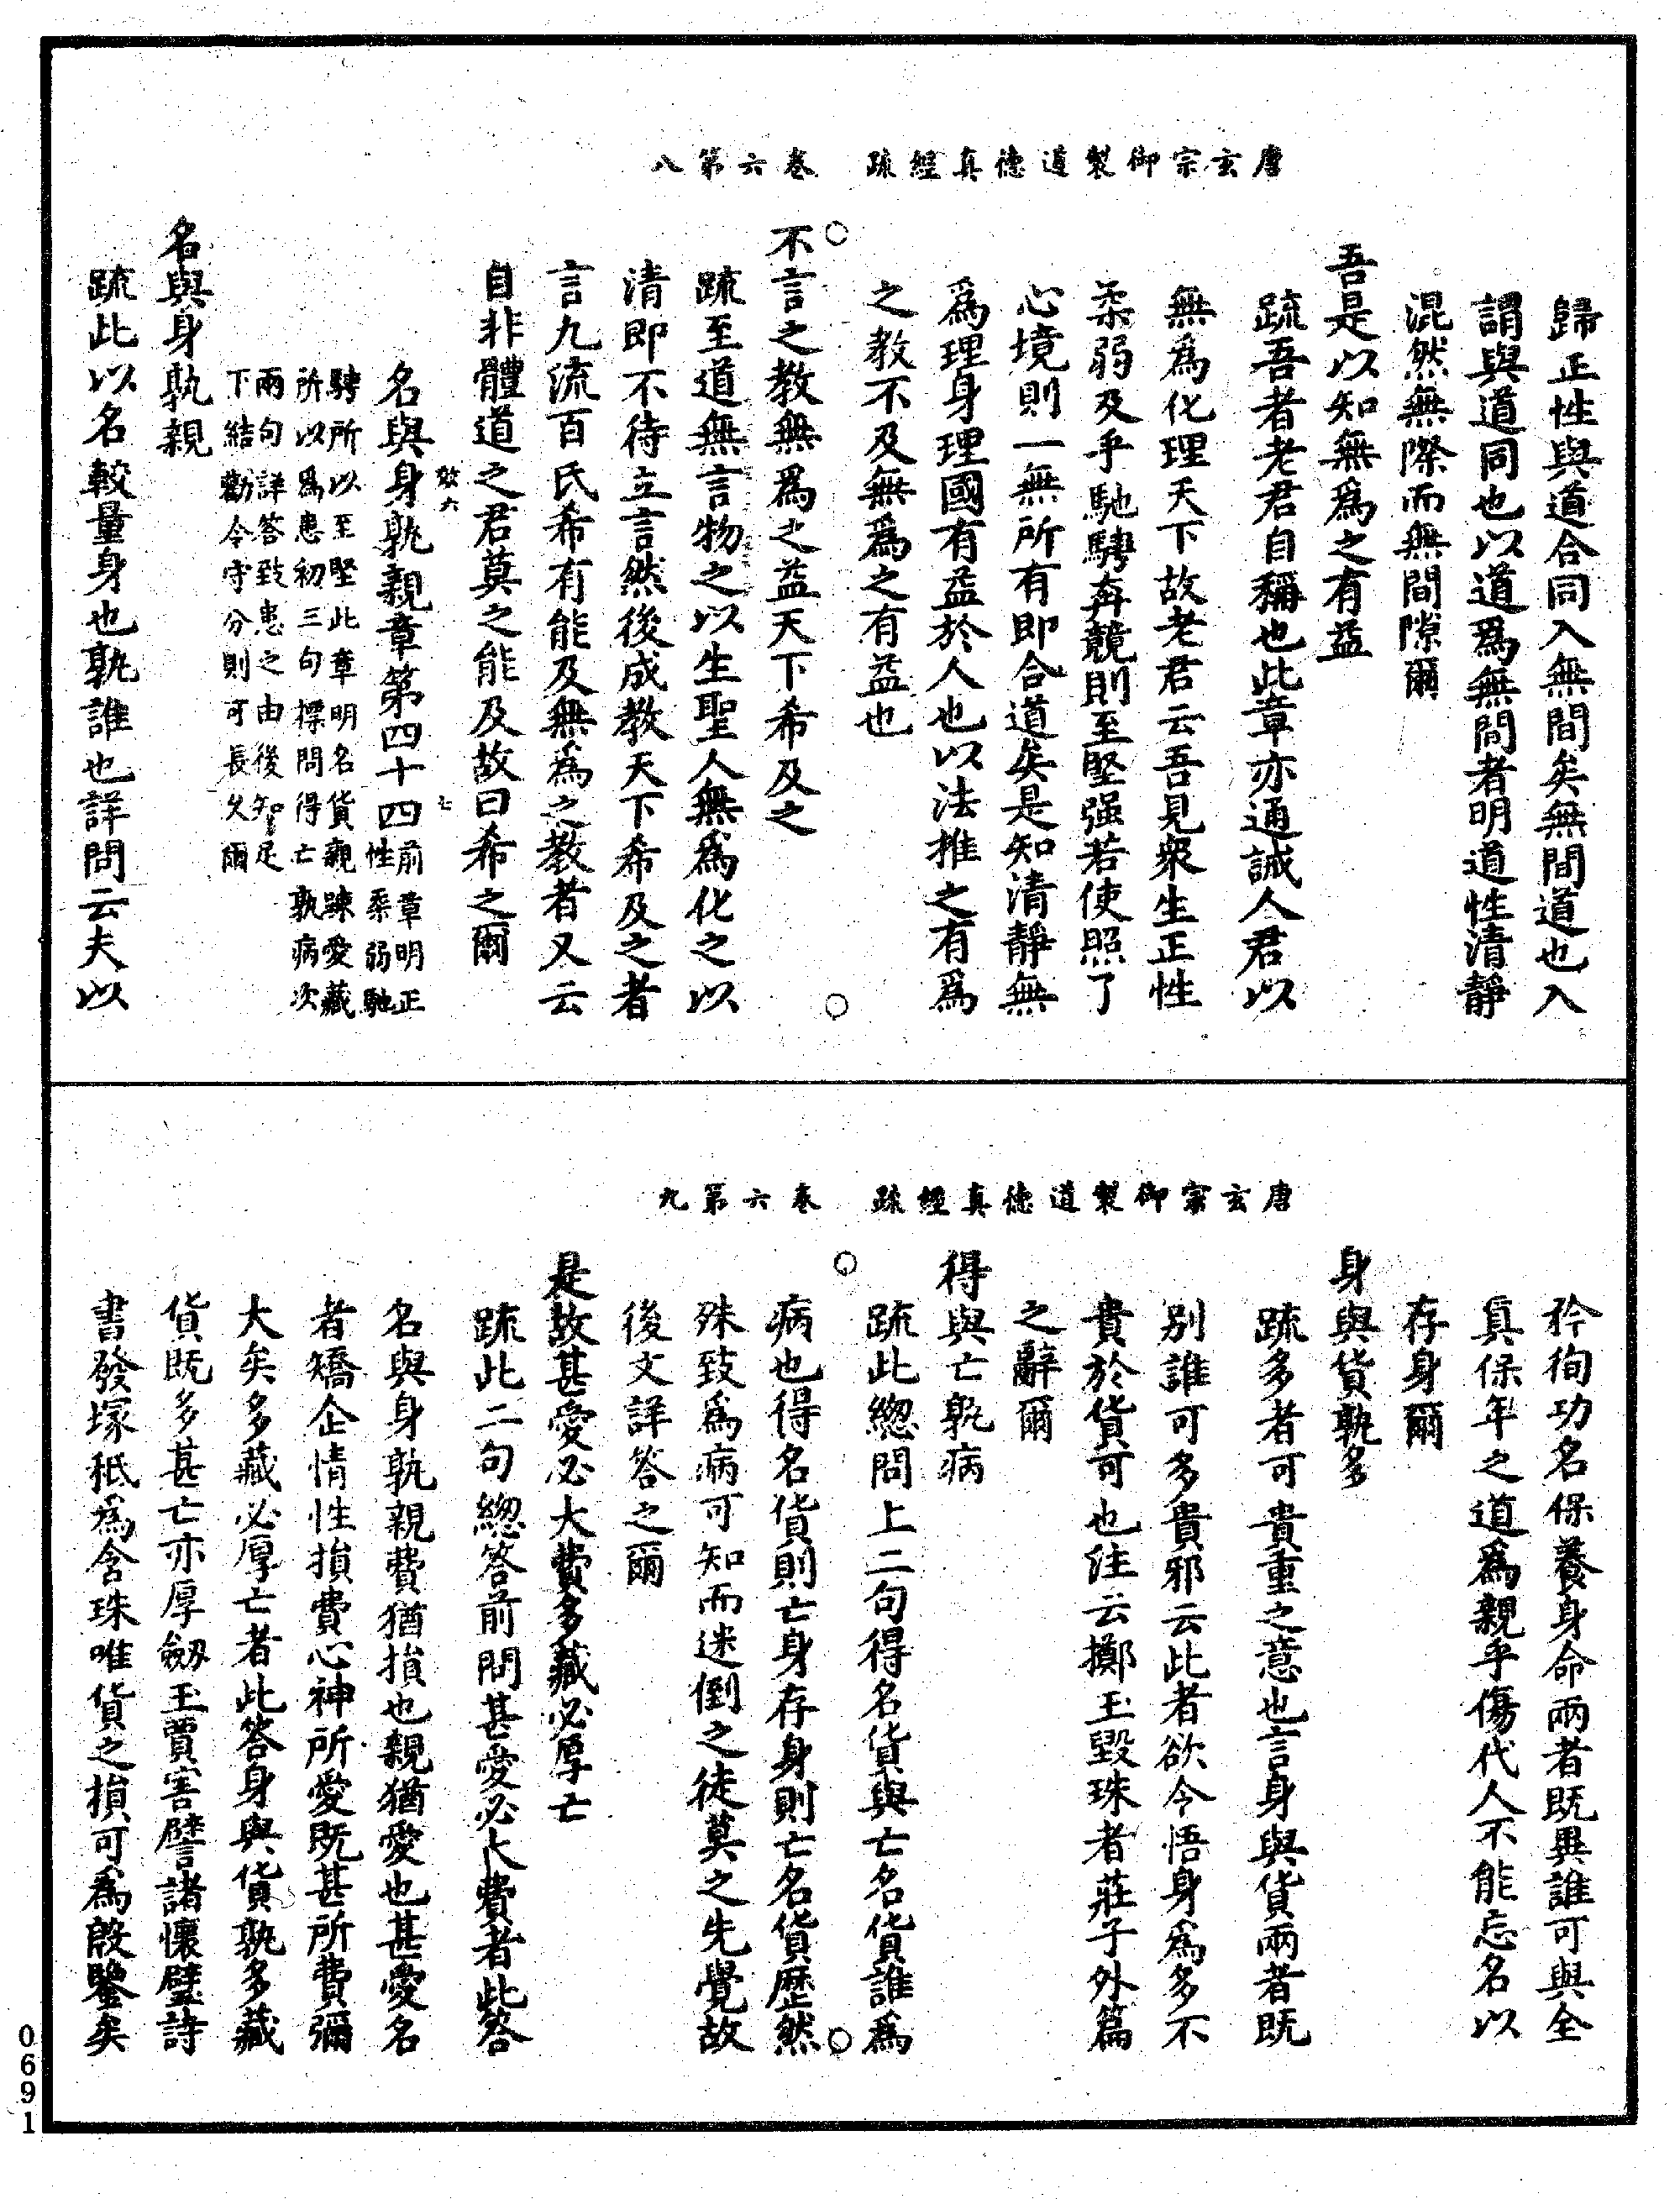 唐玄宗御製道德真經疏　卷六第八
歸正性與道合同入無間矣無間道也入
謂與道同也以道爲無間者明道性清靜
混然無際而無間隙爾
吾是以知無爲之有益
疏吾者老君自稱也此章亦通誡人君以
無爲化理天下故老君云吾見衆生正性
柔弱及乎馳騁奔競則至堅强若使照了
心境則一無所有即合道矣是知清靜無
爲理身理國有益於人也以法推之有爲
之教不及無爲之有益也
不言之教無爲之益天下希及之
疏至道無言物之以生聖人無爲化之以
清即不待立言然後成教天下希及之者
言九流百氏希有能及無爲之教者又云
自非體道之君莫之能及故曰希之爾
名與身孰親章第四十四
前章明正
性柔弱馳
騁所以至堅此章明名貨親踈愛藏
所以爲患初三句標問得亡孰病次
兩句詳答致患之由後知足
下結勸令守分則可長久爾
名與身孰親
疏此以名較量身也孰誰也詳問云夫以
唐玄宗御製道德真經疏　卷六第九
矜徇功名保養身命兩者既異誰可與全
真保年之道爲親乎傷代人不能忘名以
存身爾
身與貨孰多
疏多者可貴重之意也言身與貨兩者既
别誰可多貴邪云此者欲令悟身爲多不
貴於貨可也注云擲玉毀珠者莊子外篇
之辭爾
得與亡孰病
疏此緫問上二句得名貨與亡名貨誰爲
病也得名貨則亡身存身則亡名貨歷然
殊致爲病可知而迷倒之徒莫之先覺故
後文詳答之爾
是故甚愛必大費多藏必厚亡
疏此二句緫答前問甚愛必大費者此答
名與身孰親費猶損也親猶愛也甚愛名
者矯企情性損費心神所愛既甚所費彌
大矣多藏必厚亡者此答身與貨孰多藏
貨既多甚亡亦厚劒玉賈害譬諸懷璧詩
書發塚秖爲含珠唯貨之損可爲殷鑒矣
0691